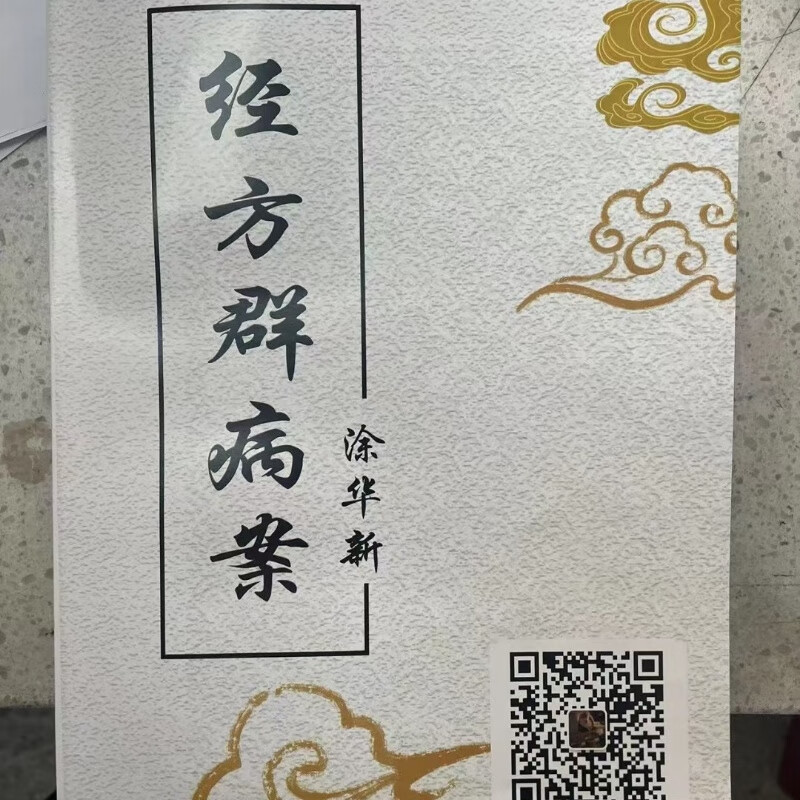 经方群病案
涂华新